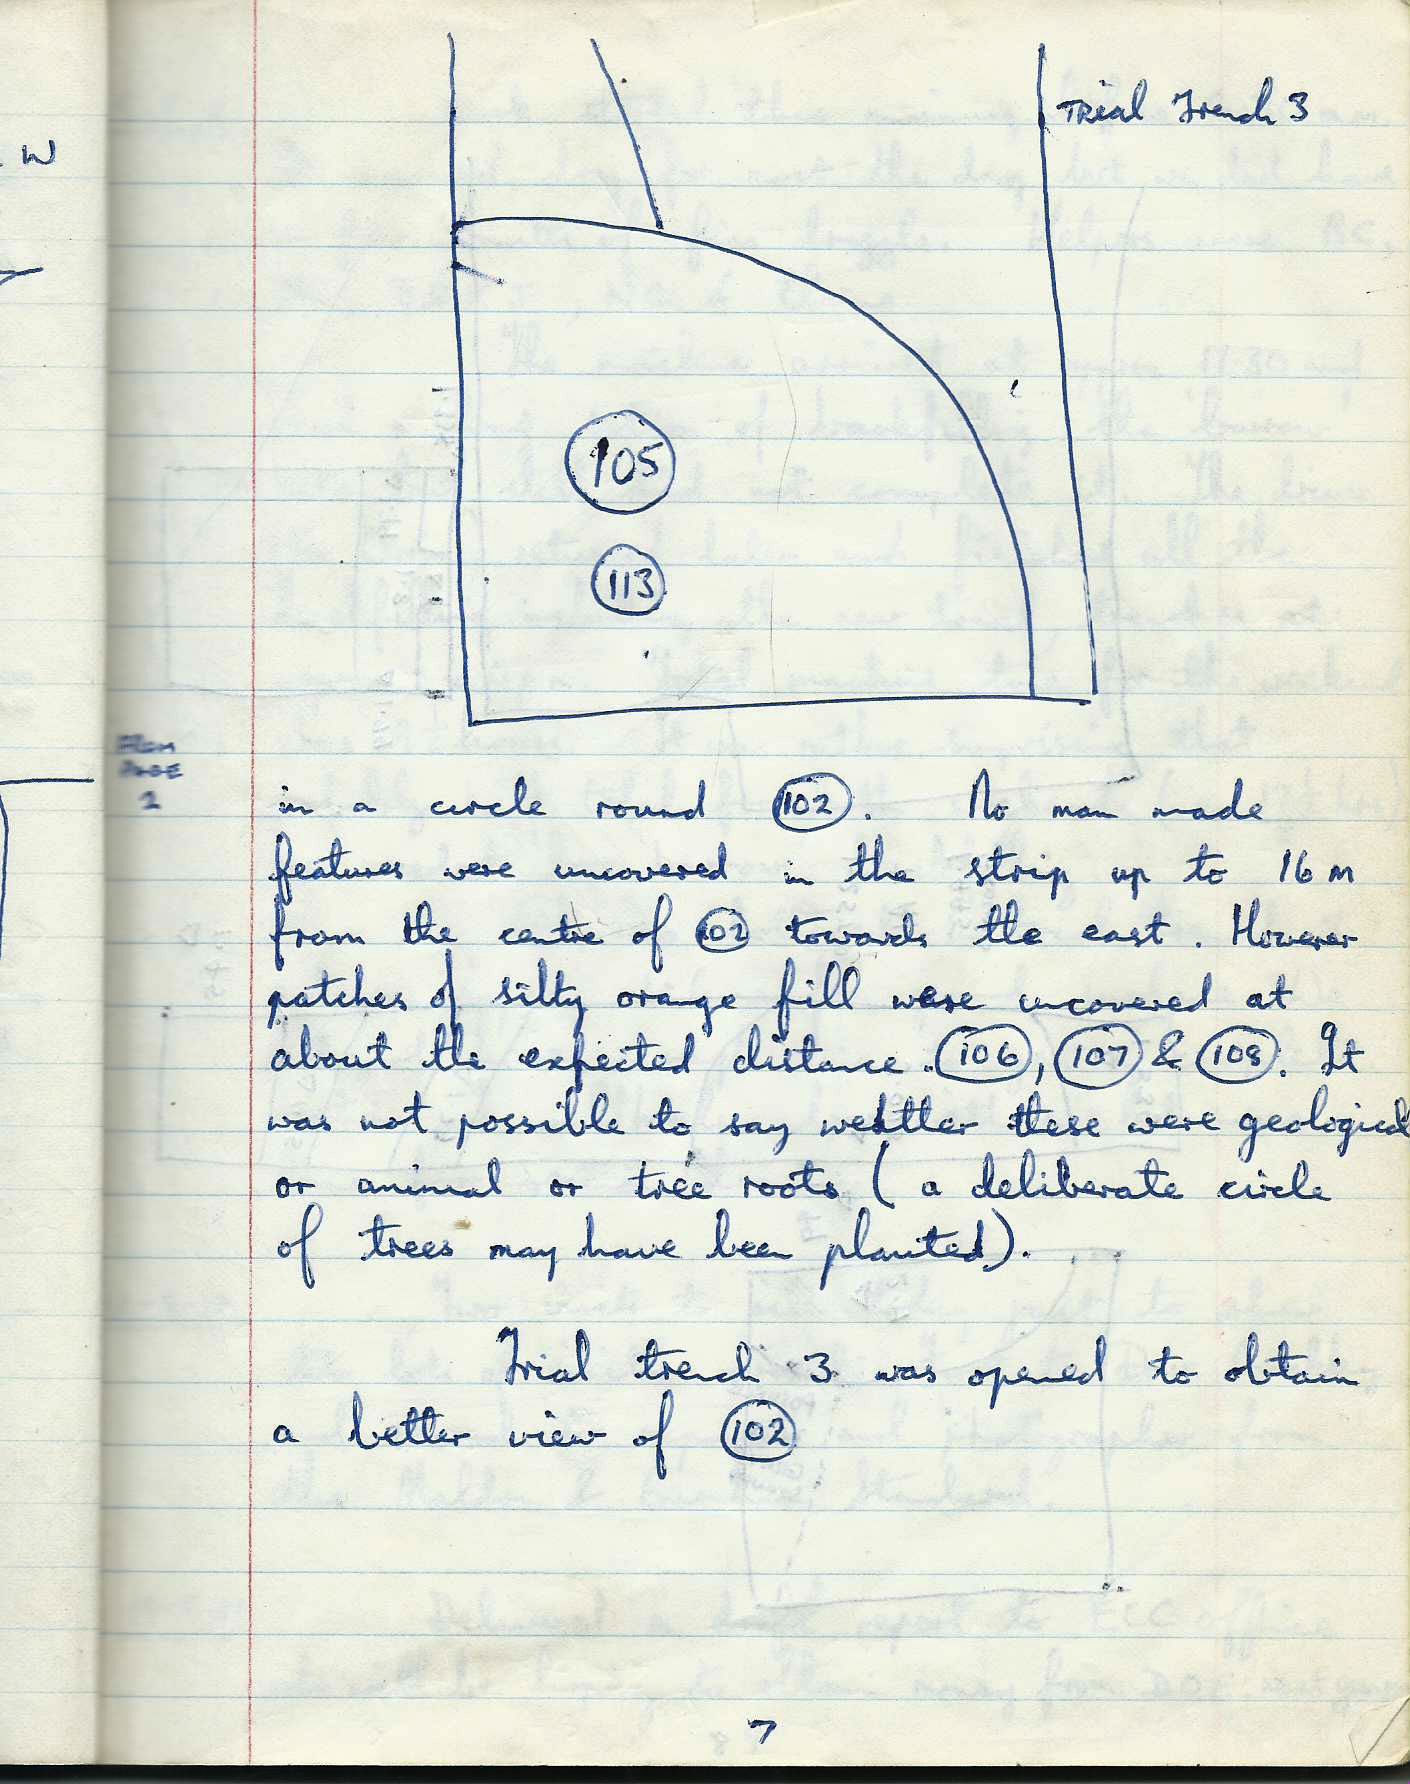 W
TRial Trench 3
105
113
FROM
PAGE
2
in a circle round 102. No man made
features were uncovered in the strip up to 16 m
from the centre of 102 towards the east. However
patches of silty orange fill were uncovered at
about the expected distance. 106, 107 & 108. It
was not possible to say wehtler these were geological
or animal or tree roots (a deliberate circle
of trees may have been planted).
Trial trench 3 was opened to obtain
a better view of 102
7